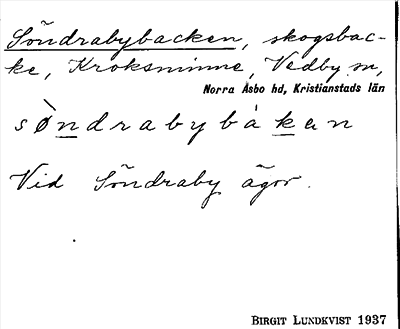 Söndrabybacken, skogsbac-
ke, Kroksminne, Vedby sn,
Norra Åsbo hd, Kristianstads län
sø̀ndrabybàken
Vid Söndraby ägor.
BIRGIT LUNDKVIST 1937